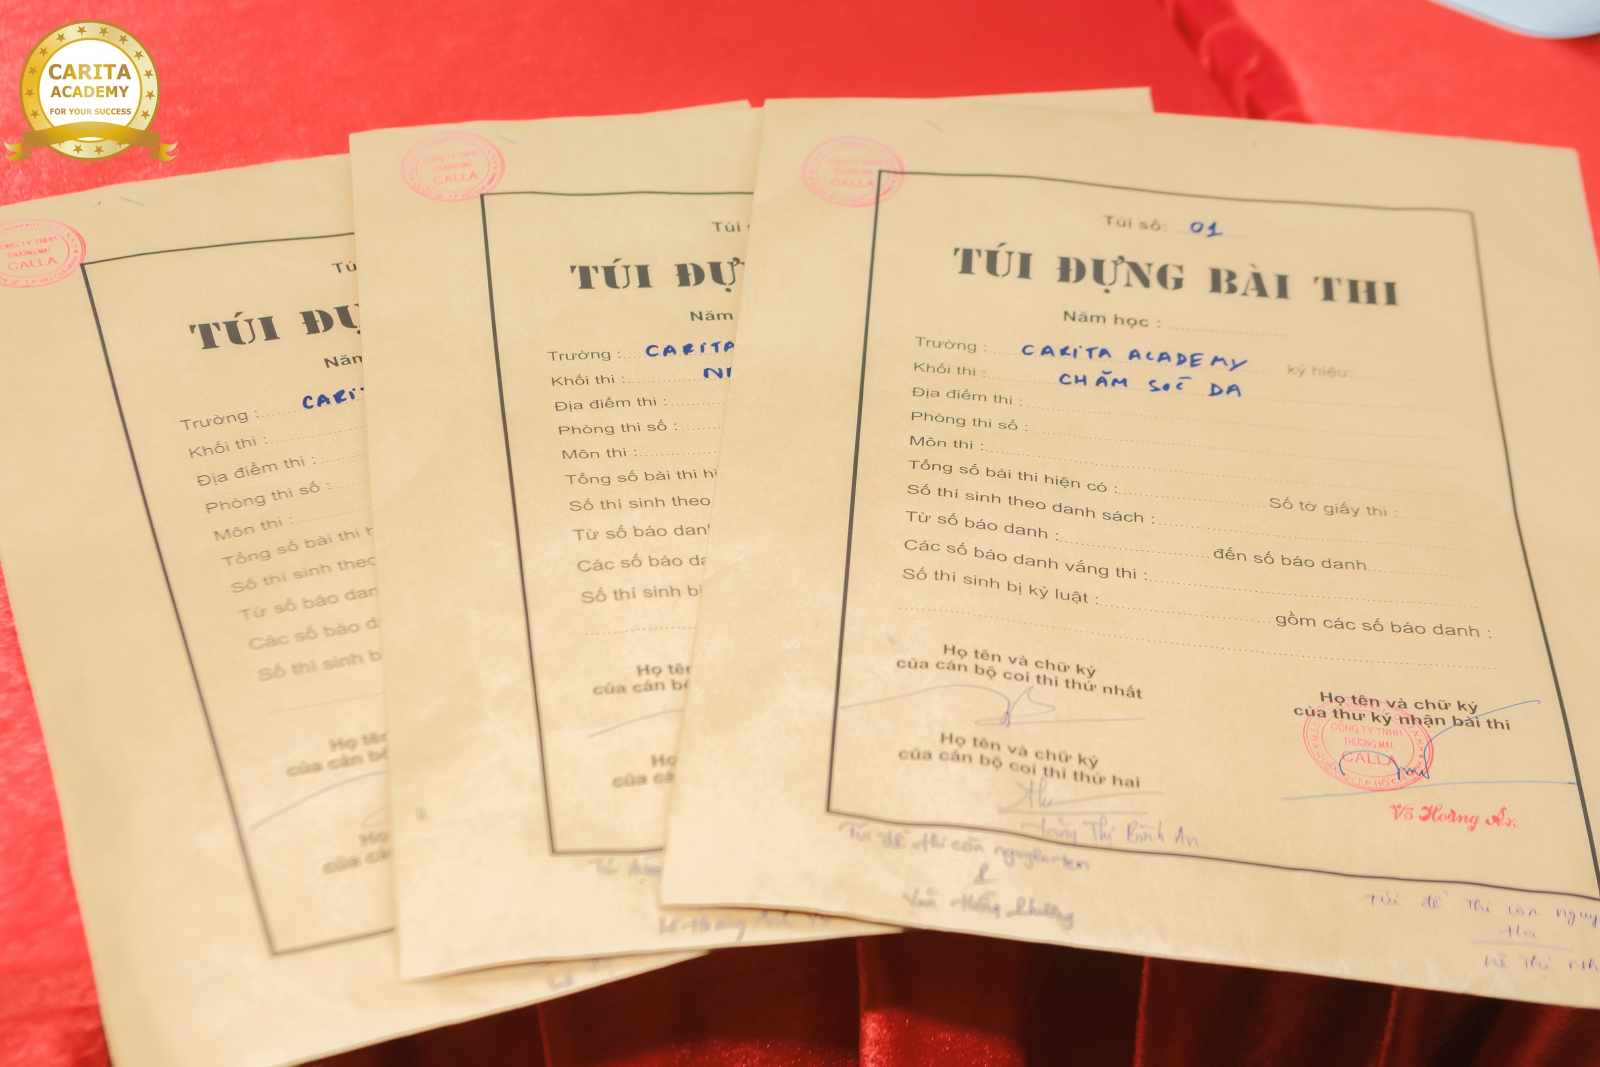 CARITA
ACADEMY
FOR YOUR SUCCESS
CÔNG TY TNHH
THƯƠNG MẠI
CALLA
TÚI
Trường :
CARIT
Khối thi :
Địa điểm thi :
Phòng thi số :
Môn thi :
Tổng số bài thi
Số thí sinh theo
Từ số báo
Các số báo
Số thí sinh
Họ
của
CÔNG TY TNHH
THƯƠNG MẠI
CALLA
Túi
TÚI
Năm
Trường : CARITA
Khối thi :
Địa điểm thi :
Phòng thi số :
Môn thi :
Tổng số bài thi
Số thí sinh theo
Từ số báo
Các số báo
Số thí sinh
Họ
của cán
Họ
của
CÔNG TY TNHH
THƯƠNG MẠI
CALLA
Túi số: 01
TÚI ĐỰNG BÀI THI
Năm học :
Trường : CARITA ACADEMY ký hiệu:
Khối thi : CHĂM SOC DA
Địa điểm thi :
Phòng thi số :
Môn thi :
Tổng số bài thi hiện có : Số tờ giấy thi :
Số thí sinh theo danh sách :
Từ số báo danh : đến số báo danh
Các số báo danh vắng thi :
Số thí sinh bị kỷ luật : gồm các số báo danh :
Họ tên và chữ ký
của cán bộ coi thi thứ nhất
Họ tên và chữ ký
của thư ký nhận bài thi
CÔNG TY TNHH
THƯƠNG MẠI
CALLA
Võ Hoàng Ân
Họ tên và chữ ký
của cán bộ coi thi thứ hai
Thị Bình An
Túi đề thi còn nguyên
Túi đề thi còn